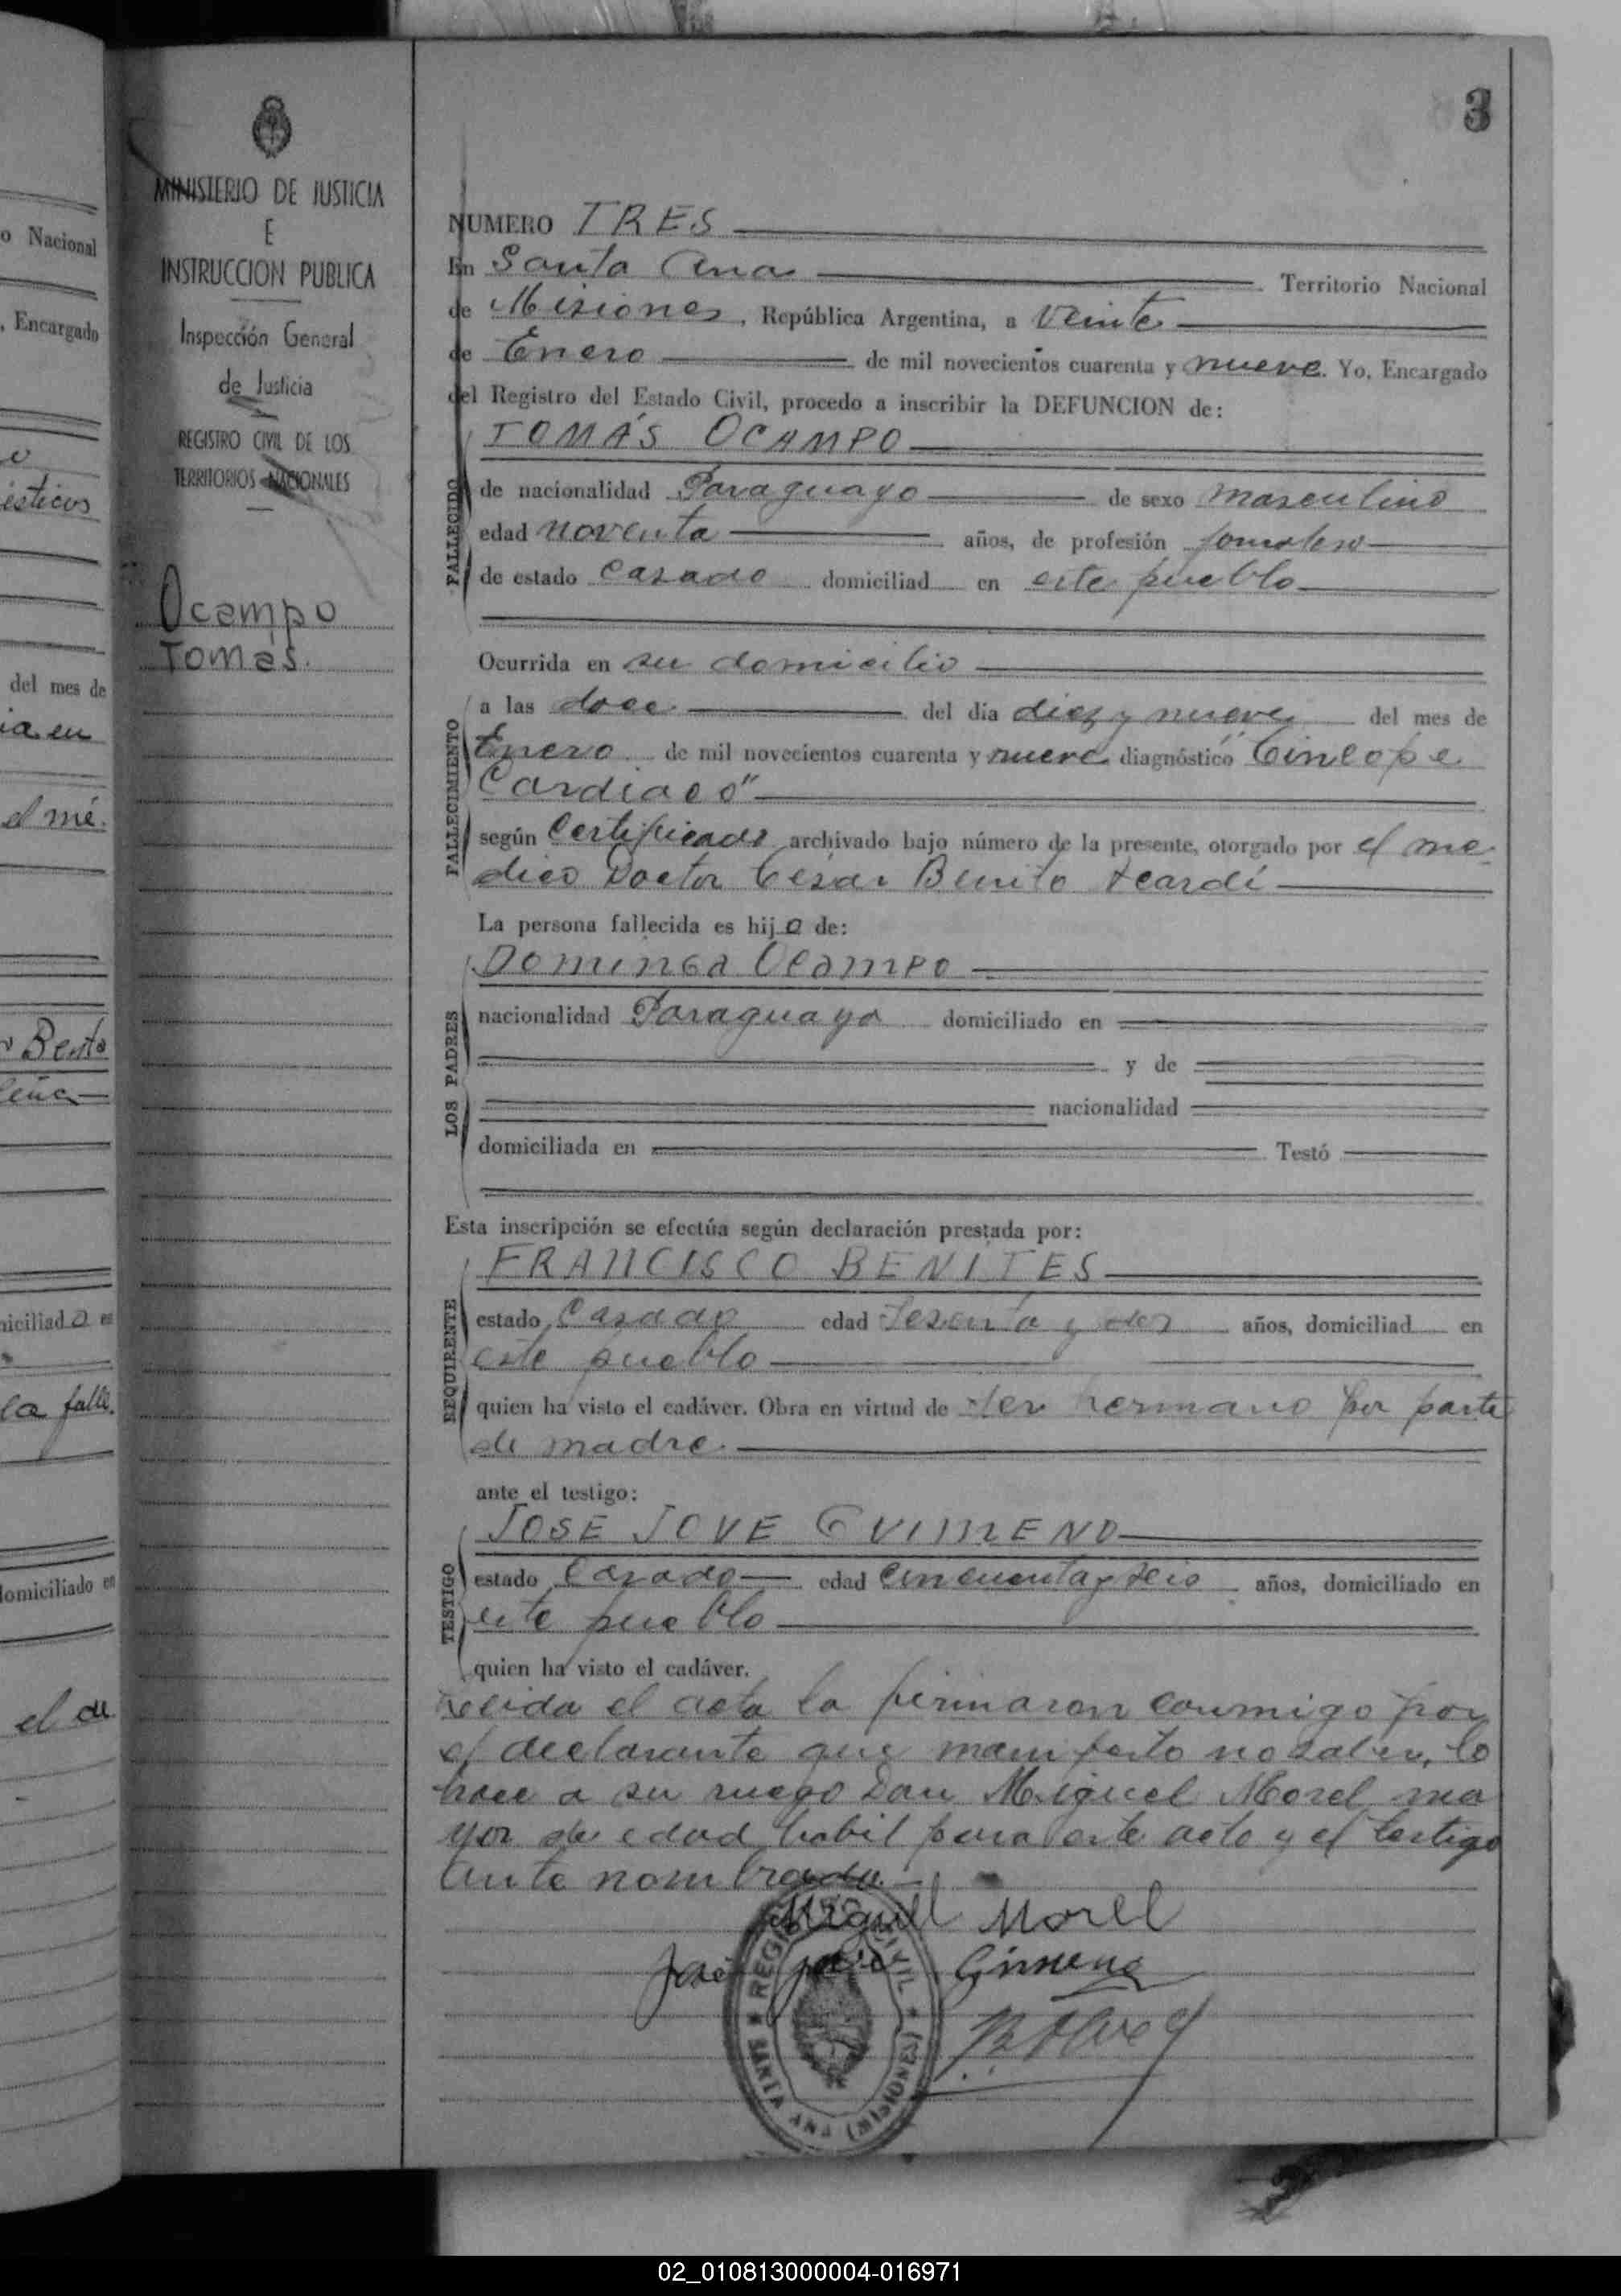 3
MINISTERIO DE JUSTICIA
E
INSTRUCCION PUBLICA
Inspección General
de Justicia
REGISTRO CIVIL DE LOS
TERRITORIOS NACIONALES
Ocampo
Tomás.
o Nacional
, Encargado
ísticos
del mes de
ia en
el mé.
Bento
niciliad a en
la falle.
domiciliado en
el de
NUMERO TRES
En Santa Ana Territorio Nacional
de Misiones, República Argentina, a veinte
de Enero de mil novecientos cuarenta y nueve. Yo, Encargado
del Registro del Estado Civil, procedo a inscribir la DEFUNCION de:
TOMÁS OCAMPO
FALLECIDO
de nacionalidad Paraguayo de sexo masculino
edad noventa años, de profesión jornalero
de estado casado domiciliad en este pueblo
Ocurrida en su domicilio
FALLECIMIENTO
a las doce del día diez y nueve del mes de
Enero de mil novecientos cuarenta y nueve diagnóstico "Cincope
Cardiaco"
según Certificado archivado bajo número de la presente, otorgado por el me-
dico Doctor César Benito Acardí
La persona fallecida es hijo de:
DOMINGA OCAMPO
LOS PADRES
nacionalidad Paraguaya domiciliado en
y de
nacionalidad
domiciliada en Testó
Esta inscripción se efectúa según declaración prestada por:
FRANCISCO BENITES
REQUIRENTE
estado Casado edad Sesenta y dos años, domiciliad en
este pueblo
quien ha visto el cadáver. Obra en virtud de ser hermano por parte
de madre.
ante el testigo:
JOSE JOVE GUIMENO
TESTIGO
estado Casado edad cincuenta y seis años, domiciliado en
este pueblo
quien ha visto el cadáver.
Leída el acta la firmaron conmigo por
el declarante que manifesto no saber, lo
hace a su ruego Don Miguel Morel ma
yor de edad habil para este acto y el testigo
ante nombrado
Miguel Morel
José Jove Gimeno
REGISTRO CIVIL
SANTA ANA (MISIONES)
02_010813000004-016971